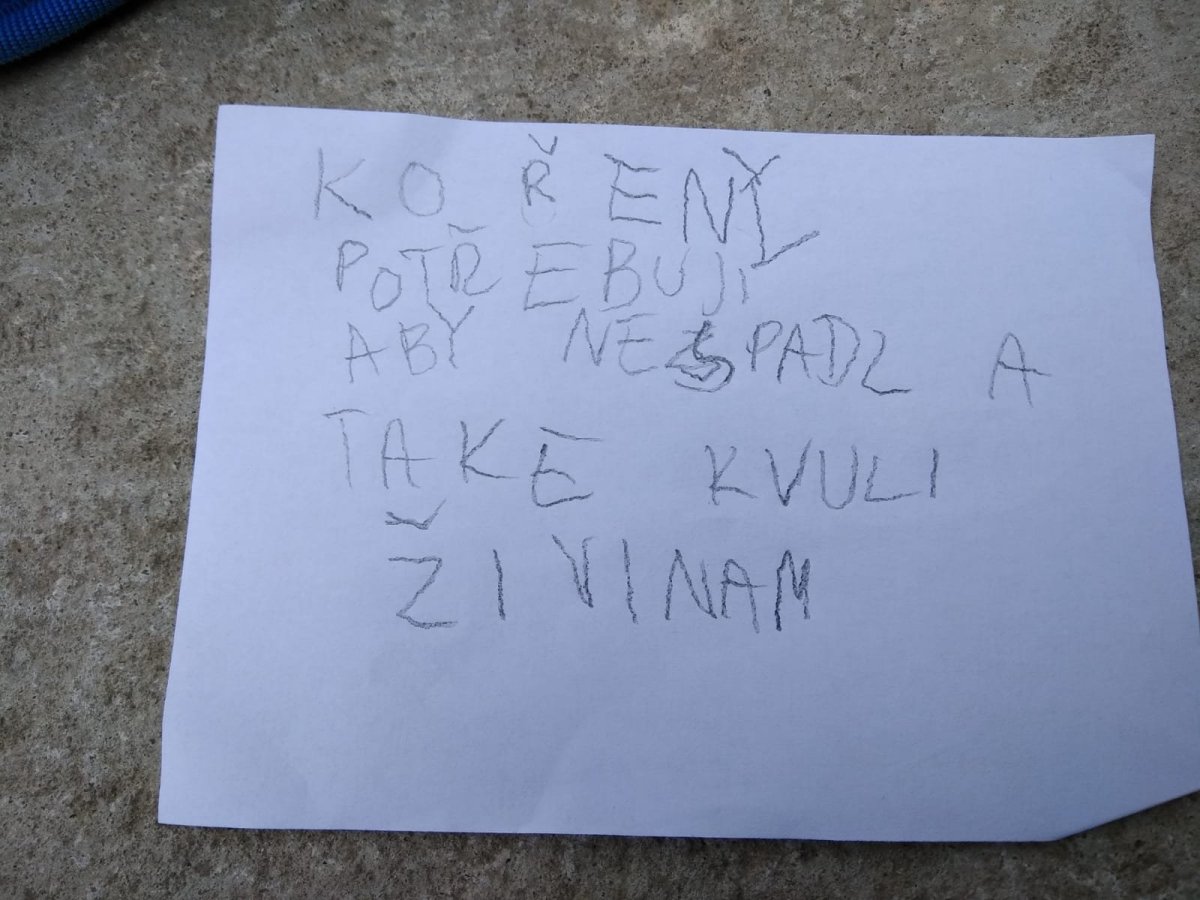 KOŘENY
POTŘEBUJI
ABY NESPADL A
TAKÉ KVULI
ŽIVINAM